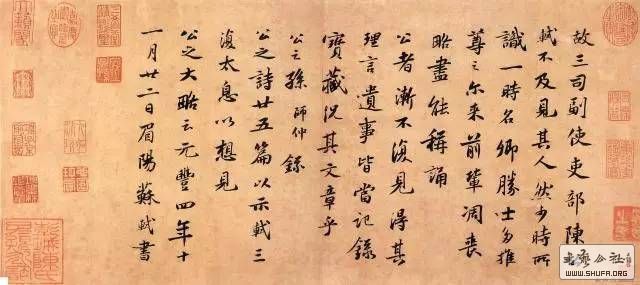 故三司副使吏部陳
軾不及見其人然少時所
識一時名卿勝士多推
尊之尔来前輩凋喪
略盡能稱誦
公者漸不復見得其
理言遺事皆當記錄
寶藏況其文章乎
公之孫師仲錄
公之詩廿五篇以示軾三
復太息以想見
公之大略云元豐四年十
一月廿二日眉陽蘇軾書
WWW.SHUFA.ORG